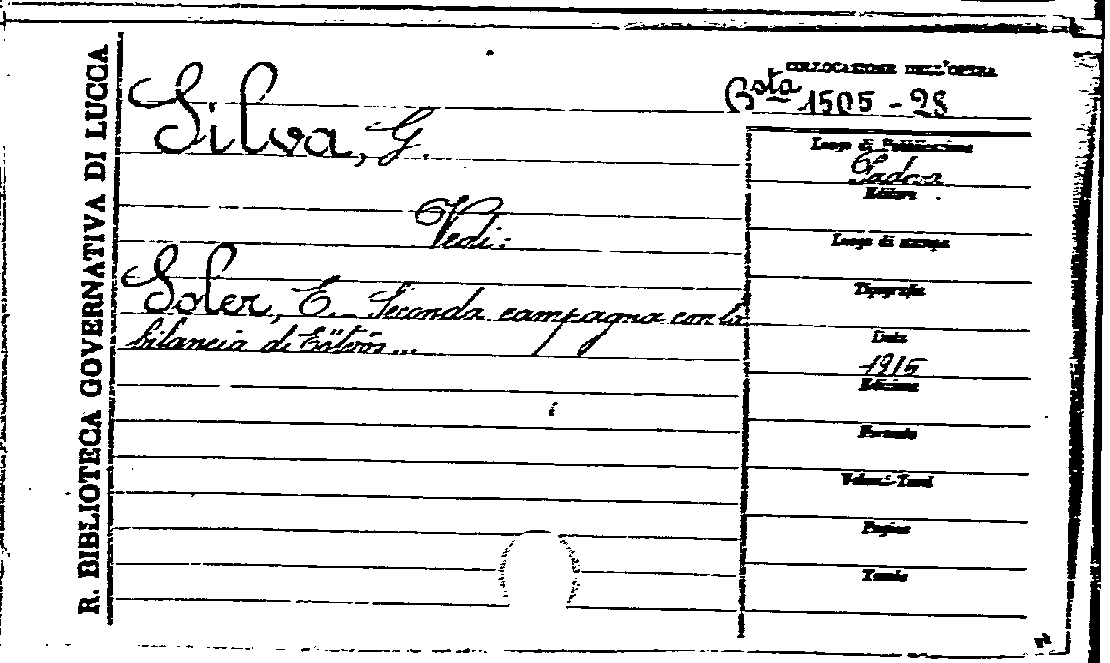 R. BIBLIOTECA GOVERNATIVA DI LUCCA
COLLOCAZIONE DELL'OPERA
Bsta 1505 - 28
Silva, G.
Vedi:
Soler, E. - Seconda campagna con la
bilancia di Eötvös...
Luogo di Pubblicazione
Padova
Editore
Luogo di stampa
Tipografia
Data
1915
Edizione
Formato
Volumi-Tomi
Pagine
Tavole